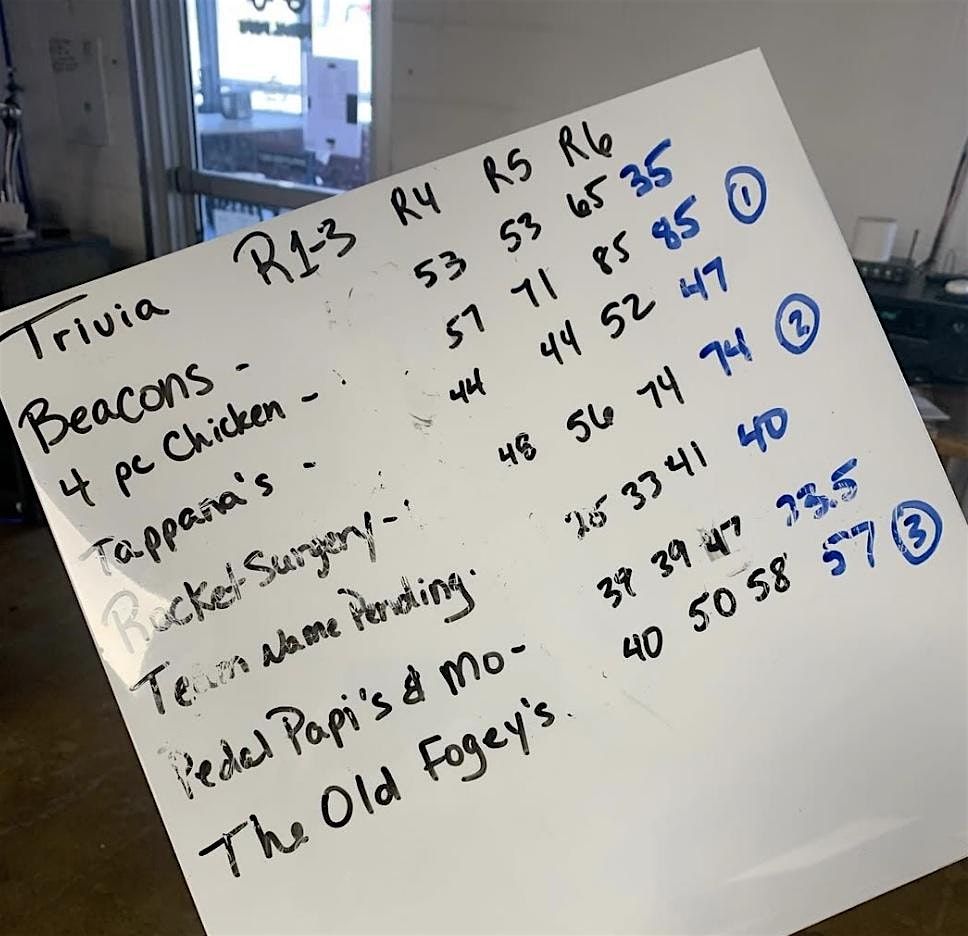 Trivia R1-3 R4 R5 R6
Beacons - 53 53 65 35
4 pc Chicken - 57 71 85 85 1
Tappana's - 44 44 52 47
Rocket Surgery - 48 56 74 74 2
Team Name Pending 25 33 41 40
Pedal Papi's & Mo- 39 39 47 33.5
The Old Fogey's. 40 50 58 57 3